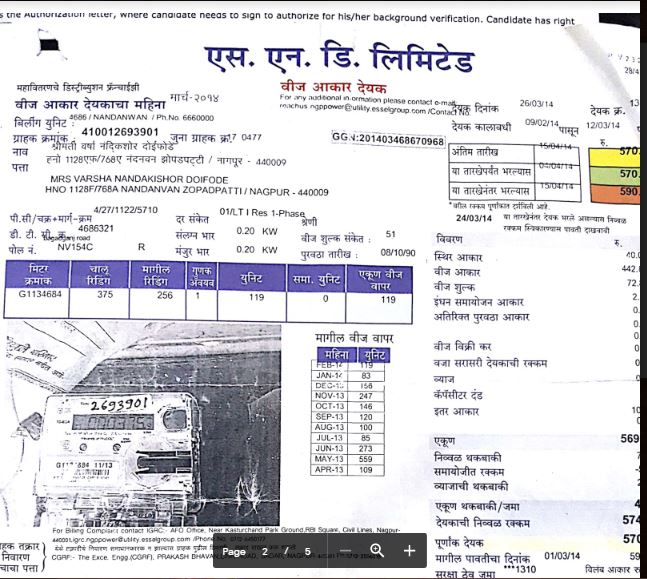 s the Authorization letter, where candidate needs to sign to authorize for his/her background verification. Candidate has right
एस. एन. डि. लिमिटेड
महावितरणचे डिस्ट्रीब्युशन फ्रॅन्चाईझी
वीज आकार देयक
वीज आकार देयकाचा महिना मार्च-२०१४
For any additional information please contact e-mail
reachus.ngppower@utility.esselgroup.com /Contact No.
बिलींग युनिट : 4686 / NANDANWAN / Ph.No. 6660000
देयक दिनांक 26/03/14 देयक क्र. 13
ग्राहक क्रमांक : 410012693901 जुना ग्राहक क्र. 7 0477
देयक कालावधी 09/02/14 पासून 12/03/14
GGN:201403468670968
नाव श्रीमती वर्षा नंदकिशोर दोईफोडे
पत्ता हनो 1128एफ/768ए नंदनवन झोपडपट्टी / नागपुर - 440009
रु.
अंतिम तारीख 15/04/14 570
या तारखेपर्यंत भरल्यास 04/04/14 570.
या तारखेनंतर भरल्यास 15/04/14 590
MRS VARSHA NANDAKISHOR DOIFODE
HNO 1128F/768A NANDANVAN ZOPADPATTI / NAGPUR - 440009
24/03/14 या तारखेनंतर देयक भरले असल्यास निव्वळ
रक्कम स्विकारण्यास पावती दाखवावी
पी.सी/चक्र+मार्ग-क्रम 4/27/1122/5710
दर संकेत 01/LT I Res 1-Phase
श्रेणी
डी. टी. सी. क्र. 4686321
संलग्न भार 0.20 KW
वीज शुल्क संकेत : 51
पोल नं. NV154C R
मंजुर भार 0.20 KW
पुरवठा तारीख : 08/10/90
मिटर क्रमाक चालू रिडिंग मागील रिडिंग गुणक अवयव युनिट समा. युनिट एकूण वीज वापर
G1134684 375 256 1 119 0 119
विवरण रु.
स्थिर आकार 40.
वीज आकार 442.
वीज शुल्क 72.
इंधन समायोजन आकार 2.
अतिरिक्त पुरवठा आकार
वीज विक्री कर
वजा सरासरी देयकाची रक्कम
व्याज
कॅपॅसीटर दंड
इतर आकार
एकूण 569
निव्वळ थकबाकी
समायोजीत रक्कम
व्याजाची थकबाकी
एकूण थकबाकी/जमा 4
देयकाची निव्वळ रक्कम 574
पूर्णांक देयक 570
मागील पावतीचा दिनांक 01/03/14 59
सुरक्षा ठेव जमा ***1310 विलंब आकार रु
मागील वीज वापर
महिना युनिट
FEB-14 119
JAN-14 83
DEC-13 156
NOV-13 247
OCT-13 146
SEP-13 120
AUG-13 100
JUL-13 85
JUN-13 273
MAY-13 559
APR-13 109
2693901
For Billing Complaint contact IGRC:- AFO Office, Near Kasturchand Park Ground,RBI Square, Civil Lines, Nagpur-
CGRF:- The Exce. Engg.(CGRF), PRAKASH BHAVAN
Page 2 / 5